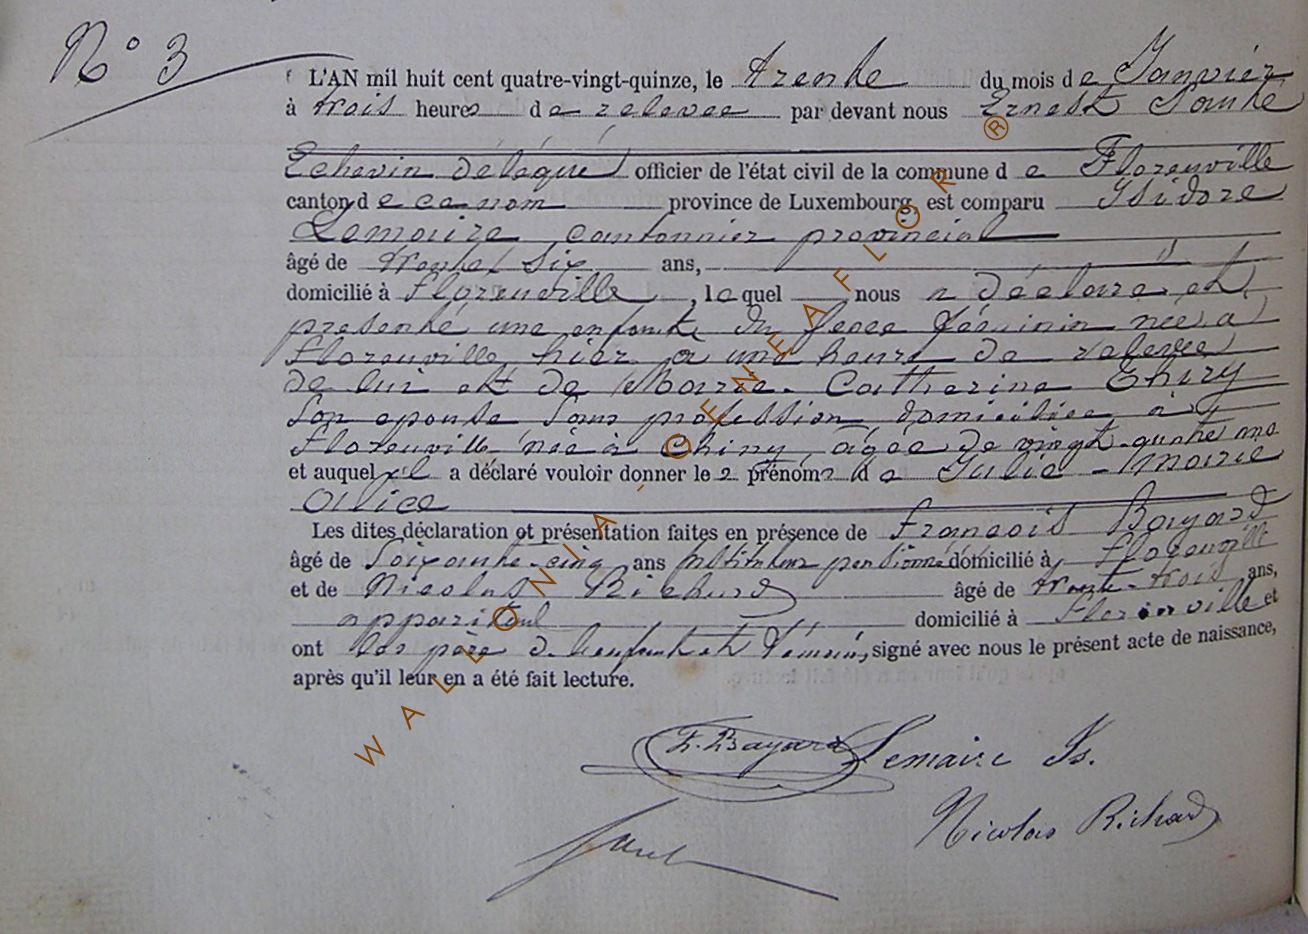 N° 3
L'AN mil huit cent quatre-vingt-quinze, le trente du mois de Janvier
à trois heures de relevee par devant nous Ernest
Echevin délégué officier de l'état civil de la commune de Florenville
canton de ce nom province de Luxembourg, est comparu Isidore
Lemaire, cantonnier provincial
âgé de trente six ans,
domicilié à Florenville, lequel nous a déclaré et
présenté une enfant du sexe féminin née à
Florenville, hier à une heure de relevée
de lui et de Marie-Catherine Thiry
son épouse sans profession, domiciliée à
Florenville née à Chiny, agée de vingt-quatre ans
et auquel il a déclaré vouloir donner le 2 prénoms de Julie-Marie
Alice
Les dites déclaration et présentation faites en présence de François Bayard
âgé de Soixante-cinq ans Instituteur pensionné domicilié à Florenville
et de Nicolas Richard âgé de trente-trois ans,
appariteur domicilié à Florenville et
ont les père de l'enfant et témoins, signé avec nous le présent acte de naissance,
après qu'il leur en a été fait lecture.
F. Bayard Lemaire Is.
Nicolas Richard
WALLONIA-GENEAFLOR ®